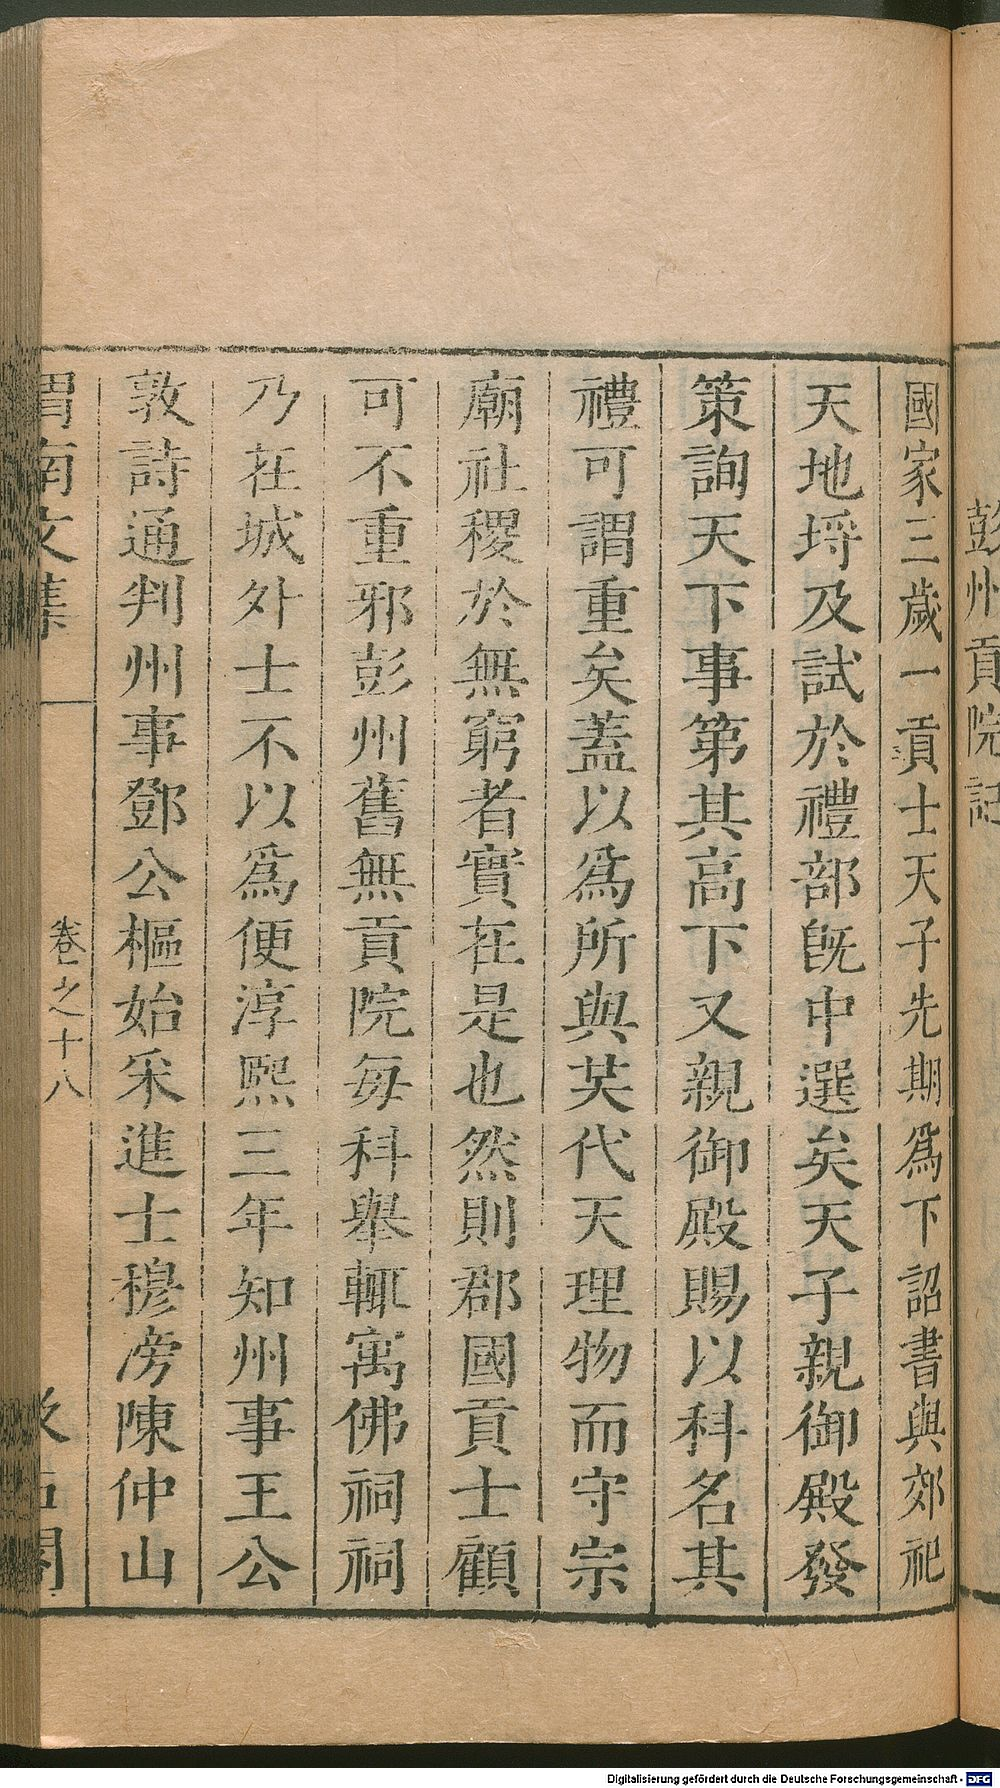 彭州貢院記
國家三歲一貢士天子先期爲下詔書與郊祀
天地埒及試於禮部旣中選矣天子親御殿發
策詢天下事第其高下又親御殿賜以科名其
禮可謂重矣蓋以爲所與共代天理物而守宗
廟社稷於無窮者實在是也然則郡國貢士顧
可不重邪彭州舊無貢院每科舉輒寓佛祠祠
乃在城外士不以爲便淳熙三年知州事王公
敦詩通判州事鄧公樞始采進士穆滂陳仲山
渭南文集
卷之十八
汲古閣
Digitalisierung gefördert durch die Deutsche Forschungsgemeinschaft - DFG